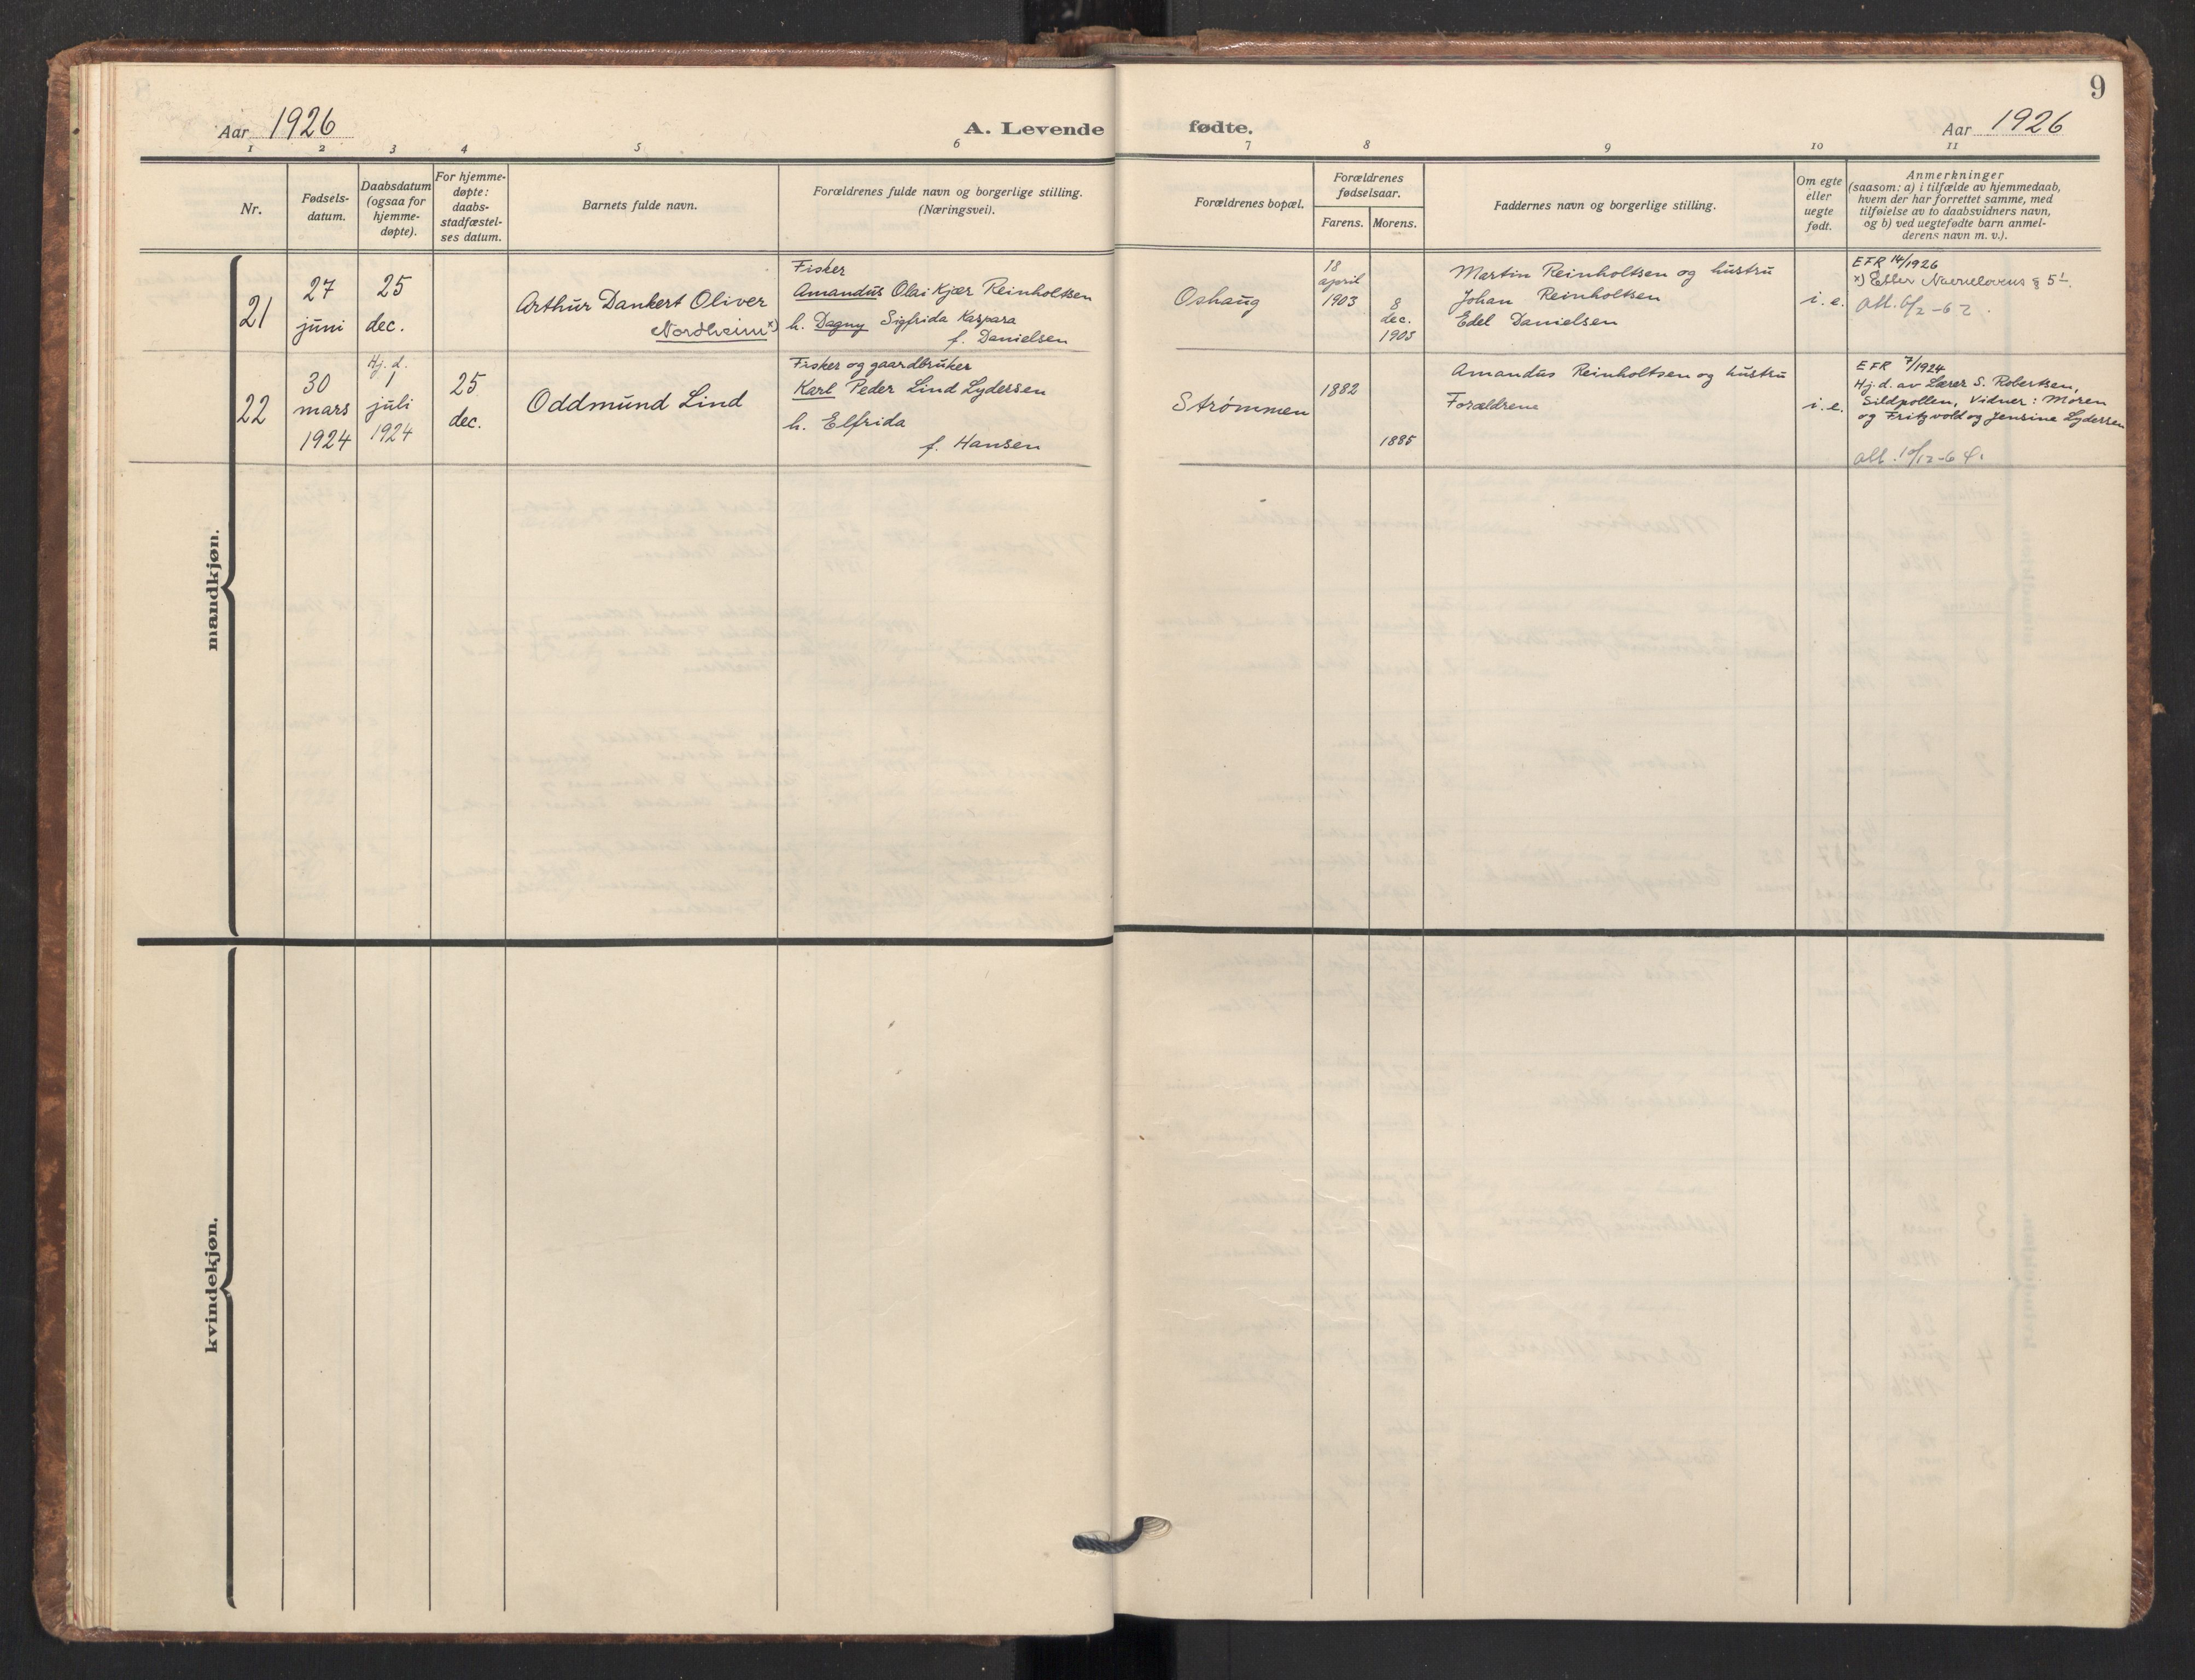 9
Aar 1926
A. Levende fødte.
Aar 1926
1 2 3 4 5 6 7 8 9 10 11
Nr.
Fødsels-
datum.
Daabsdatum
(ogsaa for
hjemme-
døpte).
For hjemme-
døpte:
daabs-
stadfæstel-
ses datum.
Barnets fulde navn.
Forældrenes fulde navn og borgerlige stilling.
(Næringsvei).
Forældrenes bopæl.
Forældrenes
fødselsaar.
Farens. Morens.
Faddernes navn og borgerlige stilling.
Om egte
eller
uegte
født.
Anmerkninger
(saasom: a) i tilfælde av hjemmedaab,
hvem der har forrettet samme, med
tilføielse av to daabsvidners navn,
og b) ved uegtefødte barn anmel-
derens navn m. v.).
mandkjøn.
21
27
juni
25
dec.
Arthur Dankert Oliver
Nordheim x)
Fisker
Amandus Olai Kjær Reinholtsen
h. Dagny Sigfrida Kaspara
f. Danielsen
Oshaug
18
april
1903
8
dec.
1905
Martin Reinholtsen og hustru
Johan Reinholtsen
Edel Danielsen
i. e.
EFR 14/1926
x) Efter Navnelovens § 5
Att. 6/2-62.
22
30
mars
1924
Hj. d.
1
juli
1924
25
dec.
Oddmund Lind
Fisker og gaardbruker
Karl Peder Lind Lydersen
h. Elfrida
f. Hansen
Strømmen
1882
1885
Amandus Reinholtsen og hustru
Forældrene
i. e.
EFR 7/1924
Hj. d. av Lærer S. Robertsen,
Sildpollen, Vidner: Moren
og Fritzvold og Jensine Lydersen
Att. 10/12-64.
kvindekjøn.